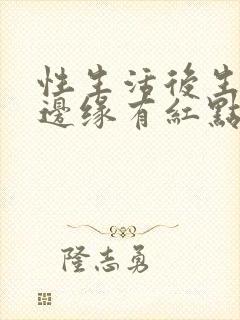 性生活後生
邊缘有紅點
隆志勇